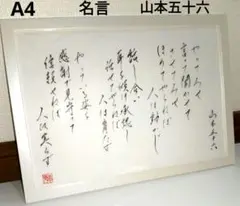 A4　名言　山本五十六
やってみせ
言って聞かせて
させてみせ
ほめてやらねば
人は動かじ
山本五十六
話し合い
耳を傾け承認し
任せてやらねば
人は育たず
やっている姿を
感謝で見守って
信頼せねば
人は実らず